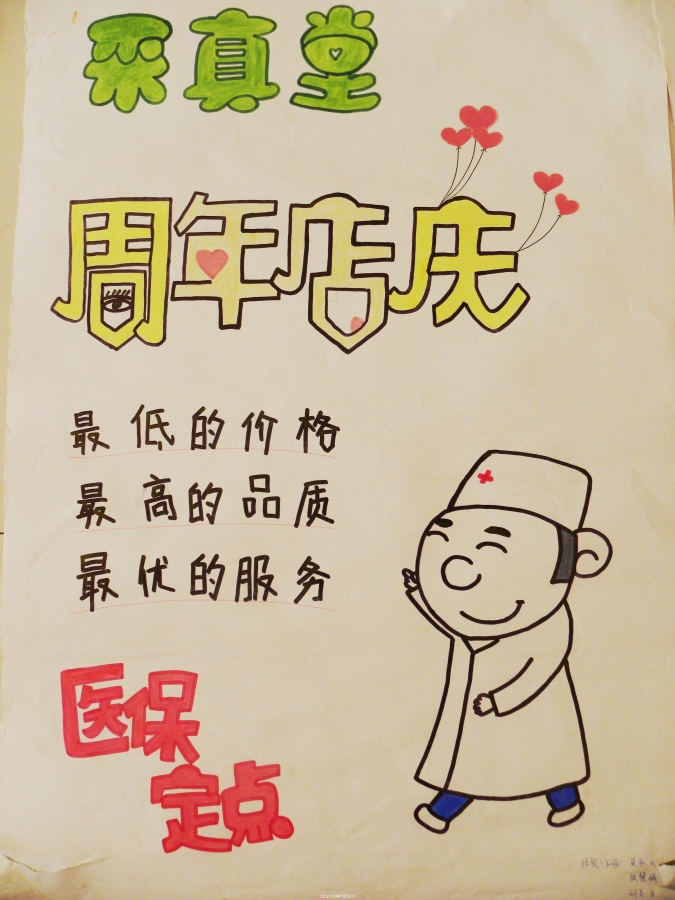 采真堂
周年店庆
最低的价格
最高的品质
最优的服务
医保
定点